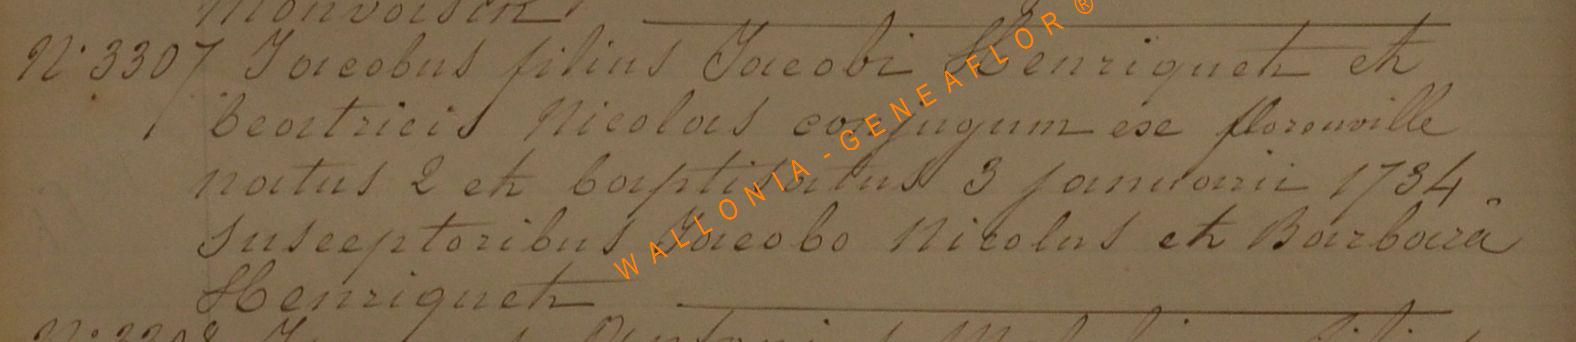 Monvoisin
N° 3307 Jacobus filius Jacobi Henriquet et
beatricis Nicolas conjugum ex florenville
natus 2 et baptisatus 3 januarii 1734
susceptoribus Jacobo Nicolas et Barbarâ
Henriquet
N° 3308
WALLONIA-GENEAFLOR®